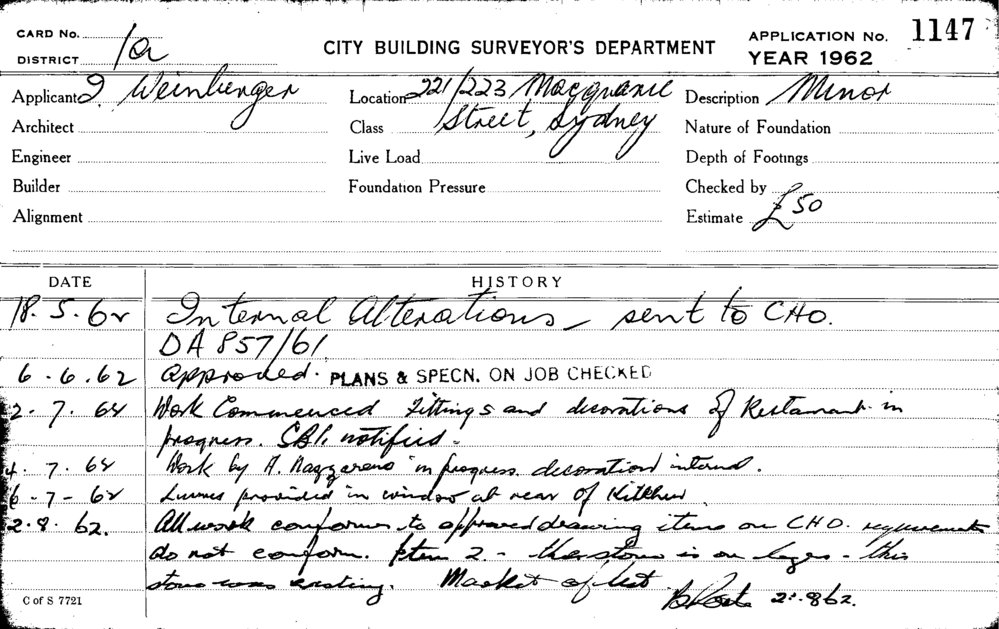 CARD No.
DISTRICT 1a
CITY BUILDING SURVEYOR'S DEPARTMENT
APPLICATION No. 1147
YEAR 1962
Applicant J. Weinberger
Architect
Engineer
Builder
Alignment
Location 221/223 Macquarie
Class Street, Sydney
Live Load
Foundation Pressure
Description Minor
Nature of Foundation
Depth of Footings
Checked by
Estimate £50
DATE HISTORY
18.5.62 Internal Alterations - sent to CHO.
DA 857/61
6.6.62 Approved. PLANS & SPECN. ON JOB CHECKED
2.7.62 Work Commenced Fittings and decorations of Restaurant in
progress. CBI. notified.
4.7.62 Work by A. in progress. decoration internal.
6-7-62 Louvres provided in window at rear of Kitchen
2.8.62. All work conforms to approved drawing items on CHO. requirements
do not conform. Item 2 - the stove is on legs - this
stove was existing. Marked off list
2.8.62.
C of S 7721